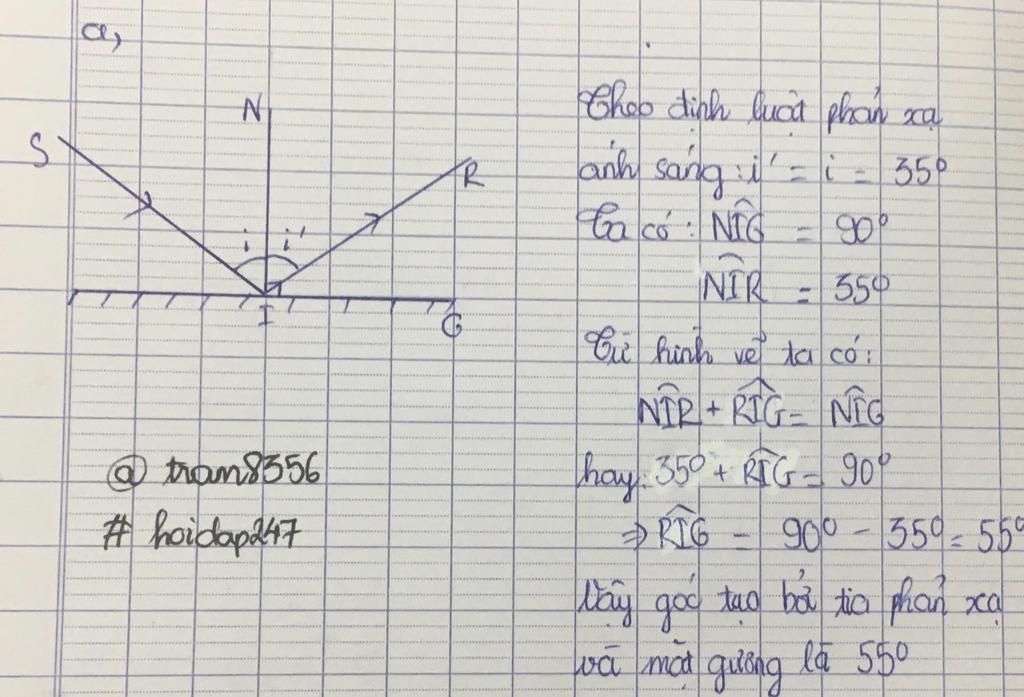 a,
N
S
R
i i'
I
G
Theo định luật phản xạ
ánh sáng: i' = i = 35°
Ta có: NIG = 90°
NIR = 35°
Từ hình vẽ ta có:
NIR + RIG = NIG
hay: 35° + RIG = 90°
⇒ RIG = 90° - 35° = 55°
Vậy góc tạo bởi tia phản xạ
và mặt gương là 55°
@ tram8356
# hoidap247